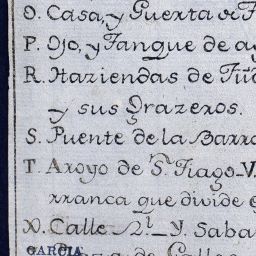 O. Casa, y Puerta de
P. Ojo, y Tanque de
R. Haziendas de
y sus Grazeros.
S. Puente de la Barr
T. Aroyo de Sn. Tiago
rranca que divide
X. Calle Rl. Y. Saba
GARCIA